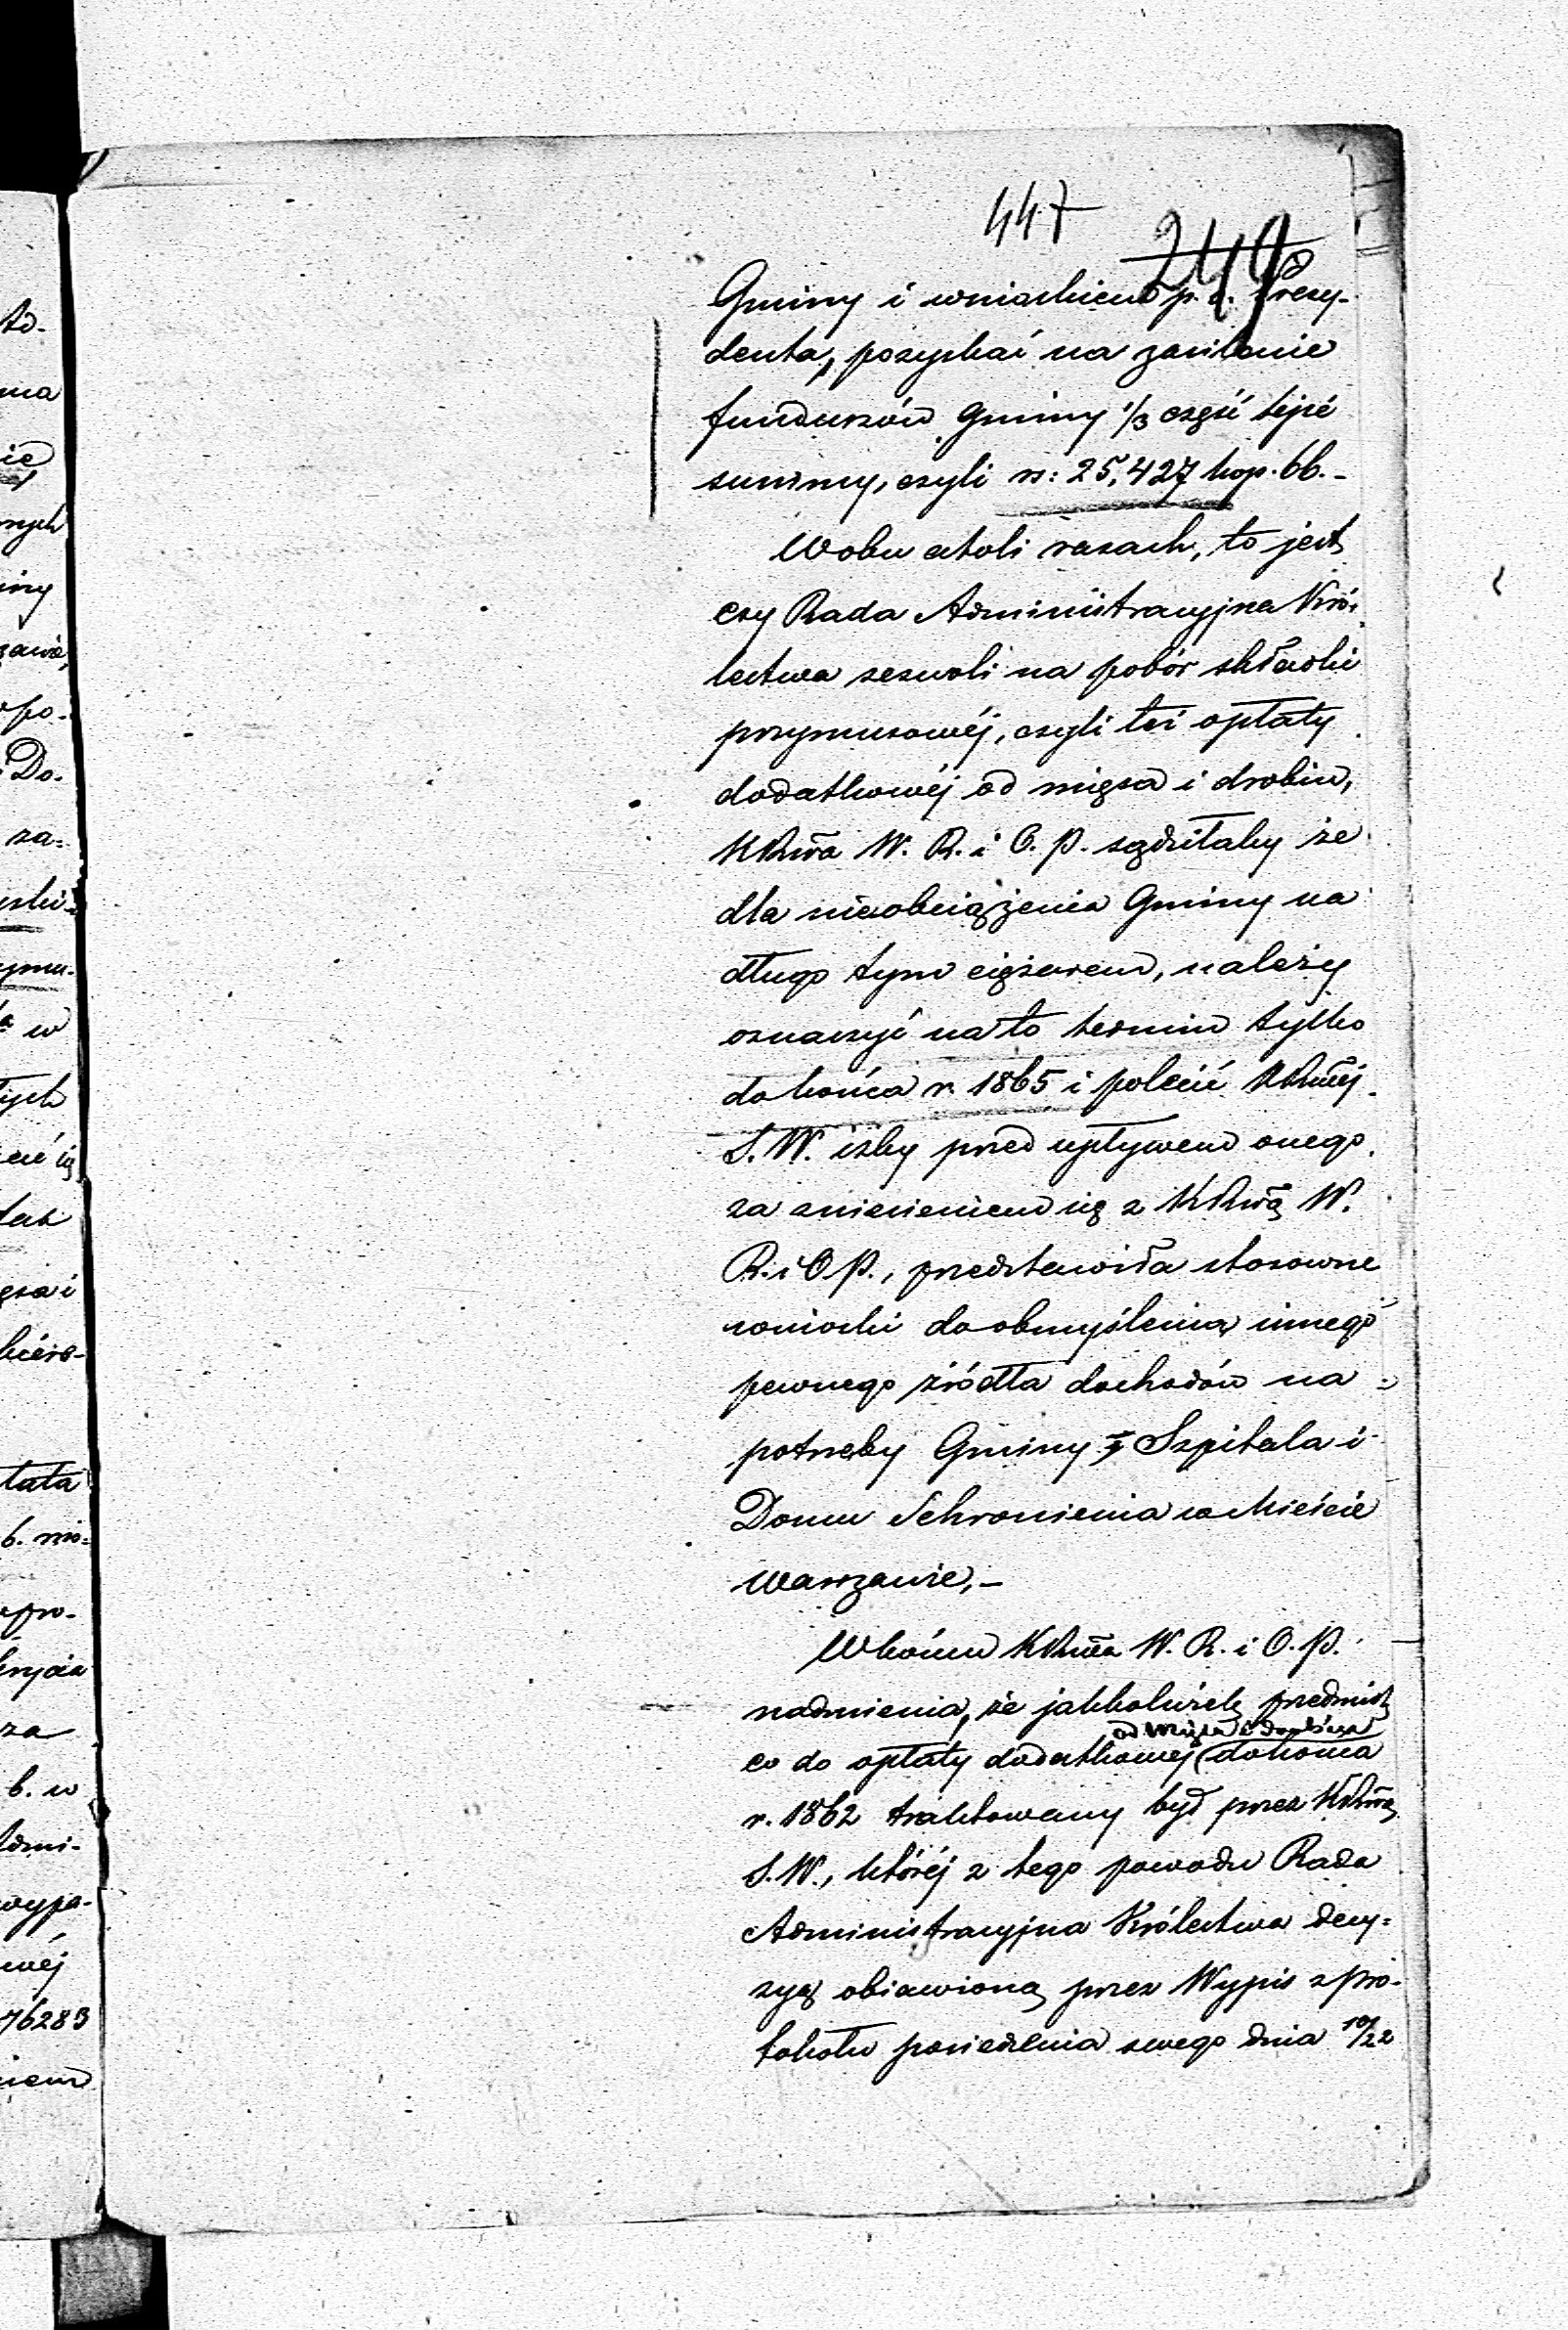 447
249
Gminy i wnioskiem p. o. Prezy-
denta, pozyskać na zasilenie
funduszów Gminy 1/3 część tejże
summy, czyli rs: 25,427 kop. 66.-
W obu atoli razach, to jest
czy Rada Administracyjna Kró-
lestwa zezwoli na pobór składki
przymusowéj, czyli téż opłaty
dodatkowéj od mięsa i drobiu,
KRzwa W. R. i O. P. sądziłaby że
dla nieobciążenia Gminy na
długo tym ciężarem, należy
oznaczyć na to termin tylko
do końca r. 1865 i polecić KRzwéj
S. W. iżby przed upływem onego
za zniesieniem się z KRzwą W.
R. i O P., przedstawiła stosowne
wnioski do obmyślenia innego
pewnego źródła dochodów na
potrzeby Gminy, Szpitala i
Domu Schronienia w Mieście
Warszawie,-
W końcu KRzwa W. R. i O. P.
nadmienia, że jakkolwiek przedmiot
od mięsa i drobiu
co do opłaty dodatkowej do końca
r. 1862 traktowany był przez KRzwą
S. W., któréj z tego powodu Rada
Administracyjna Królestwa decy-
zyą obiawioną przez Wypis z Pro-
tokołu posiedzenia swego dnia 10/22